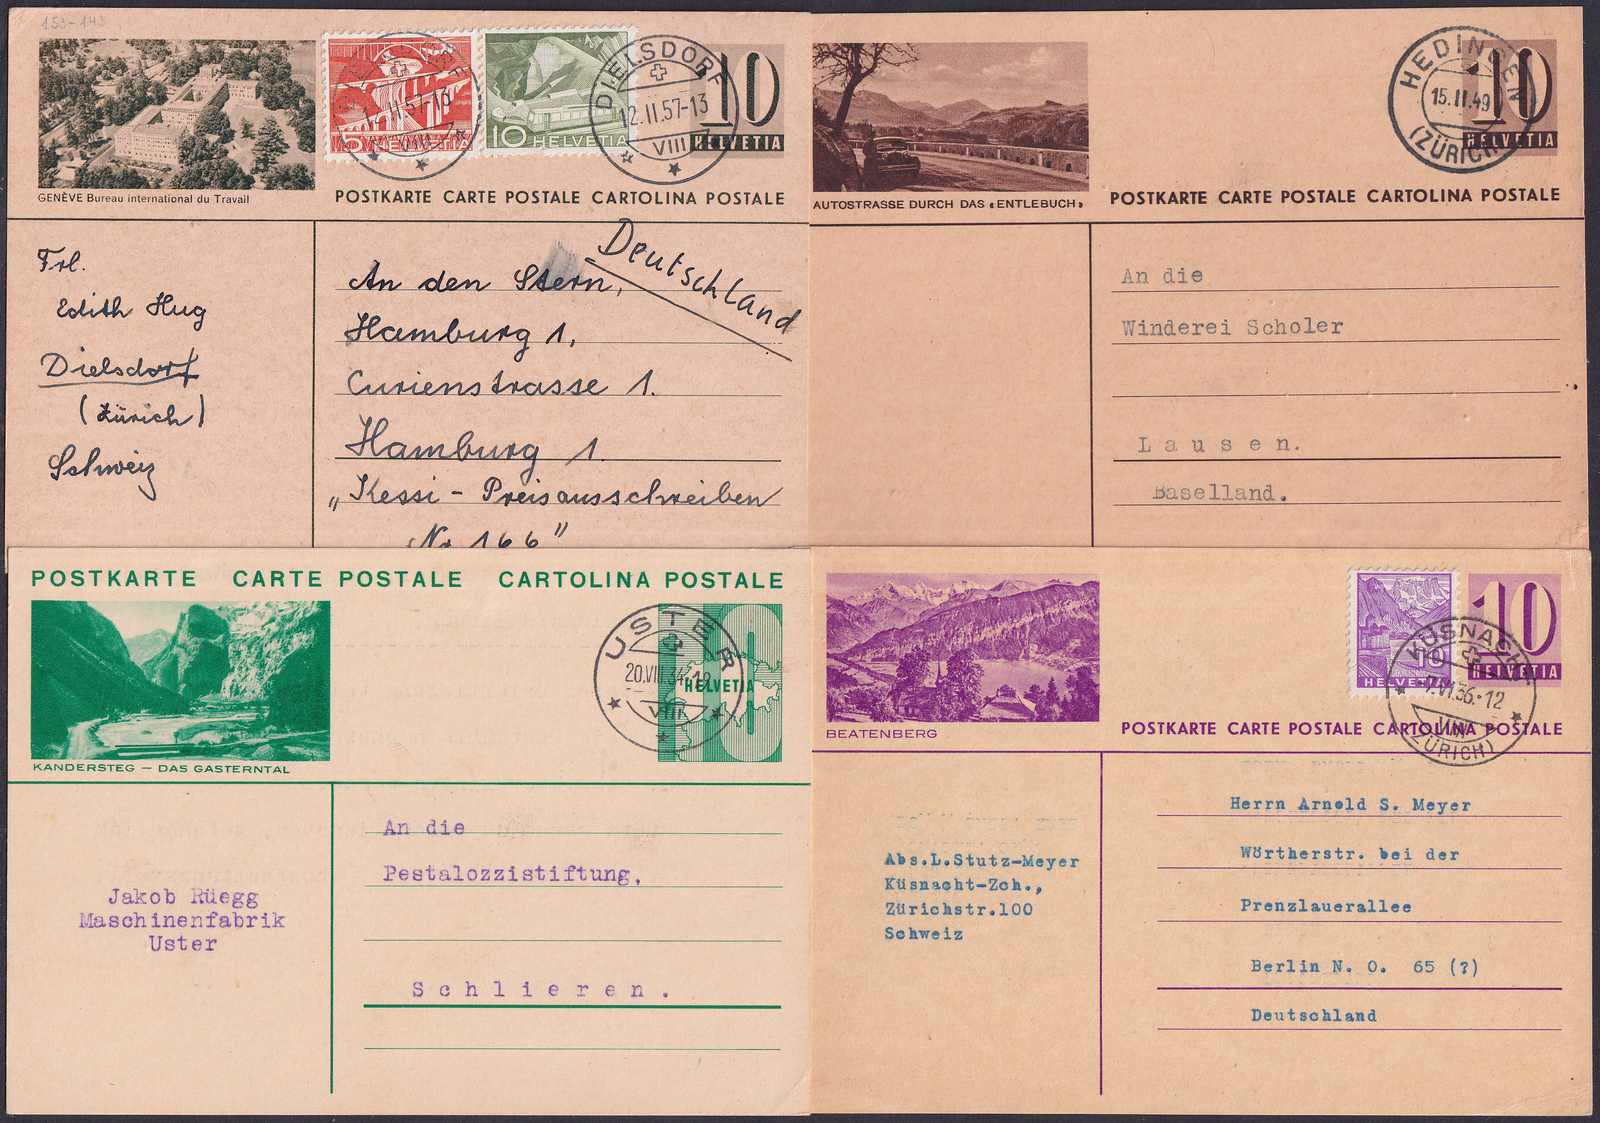 153-143
GENÈVE Bureau international du Travail
5 HELVETIA
10 HELVETIA
10
HELVETIA
DIELSDORF
12.II.57-13
VIII
DIELSDORF
12.II.57-13
VIII
POSTKARTE CARTE POSTALE CARTOLINA POSTALE
Frl.
Edith Hug
Dielsdorf
(Zürich)
Schweiz
Deutschland
An den Stern,
Hamburg 1,
Curienstrasse 1.
Hamburg 1.
„Kessi - Preisausschreiben
No 166"
AUTOSTRASSE DURCH DAS «ENTLEBUCH»
10
HELVETIA
HEDINGEN
15.II.49
(ZÜRICH)
POSTKARTE CARTE POSTALE CARTOLINA POSTALE
An die
Winderei Scholer
Lausen.
Baselland.
POSTKARTE CARTE POSTALE CARTOLINA POSTALE
KANDERSTEG — DAS GASTERNTAL
HELVETIA
USTER
20.VIII.34-12
VIII
Jakob Rüegg
Maschinenfabrik
Uster
An die
Pestalozzistiftung,
Schlieren.
BEATENBERG
10
HELVETIA
10
HELVETIA
KÜSNACHT
7.VI.36-12
(ZÜRICH)
POSTKARTE CARTE POSTALE CARTOLINA POSTALE
Abs.L.Stutz-Meyer
Küsnacht-Zch.,
Zürichstr.100
Schweiz
Herrn Arnold S. Meyer
Wörtherstr. bei der
Prenzlauerallee
Berlin N. O. 65 (?)
Deutschland